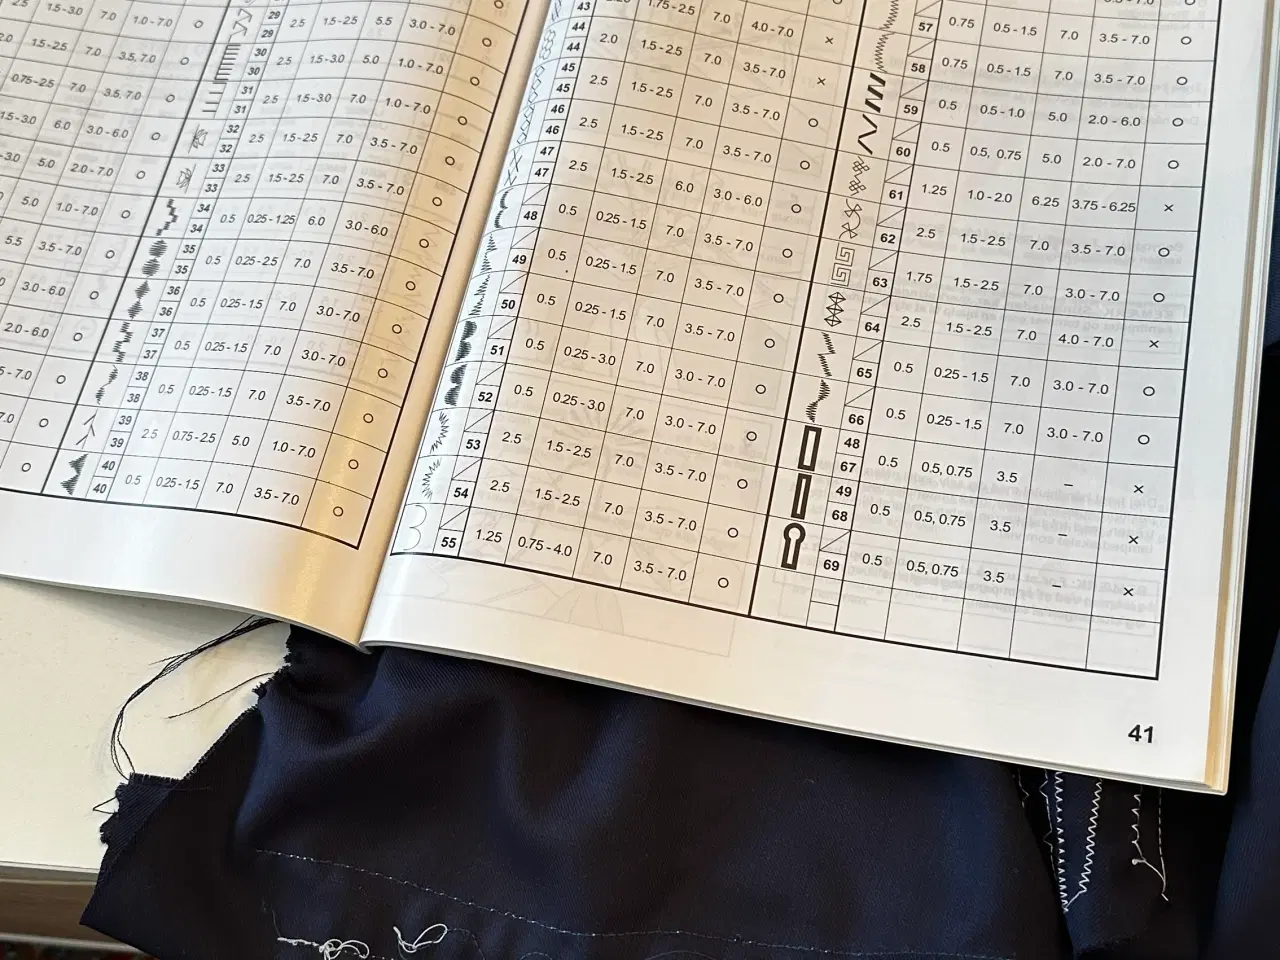 2.5 1.5-3.0 7.0 1.0-7.0
1.5-2.5 7.0 3.5, 7.0
0.75-2.5 7.0 3.5, 7.0
1.5-3.0 6.0 3.0-6.0
5.0 2.0-7.0
5.0 1.0-7.0
5.5 3.5-7.0
3.0-6.0
2.0-6.0
29
29 2.5 1.5-2.5 5.5 3.0-7.0
30
30 2.5 1.5-3.0 5.0 1.0-7.0
31
31 2.5 1.5-3.0 7.0 1.0-7.0
32
32 2.5 1.5-2.5 7.0 3.5-7.0
33
33 2.5 1.5-2.5 7.0 3.5-7.0
34
34 0.5 0.25-1.25 6.0 3.0-6.0
35
35 0.5 0.25-2.5 7.0 3.5-7.0
36
36 0.5 0.25-1.5 7.0 3.0-7.0
37
37 0.5 0.25-1.5 7.0 3.0-7.0
38
38 0.5 0.25-1.5 7.0 3.5-7.0
39
39 2.5 0.75-2.5 5.0 1.0-7.0
40
40 0.5 0.25-1.5 7.0 3.5-7.0
43 1.75-2.5 7.0 4.0-7.0 ×
44
44 2.0 1.5-2.5 7.0 3.5-7.0 ×
45
45 2.5 1.5-2.5 7.0 3.5-7.0
46
46 2.5 1.5-2.5 7.0 3.5-7.0
47
47 2.5 1.5-2.5 6.0 3.0-6.0
48 0.5 0.25-1.5 7.0 3.5-7.0
49 0.5 0.25-1.5 7.0 3.5-7.0
50 0.5 0.25-1.5 7.0 3.5-7.0
51 0.5 0.25-3.0 7.0 3.0-7.0
52 0.5 0.25-3.0 7.0 3.0-7.0
53 2.5 1.5-2.5 7.0 3.5-7.0
54 2.5 1.5-2.5 7.0 3.5-7.0
55 1.25 0.75-4.0 7.0 3.5-7.0
57 0.75 0.5-1.5 7.0 3.5-7.0
58 0.75 0.5-1.5 7.0 3.5-7.0
59 0.5 0.5-1.0 5.0 2.0-6.0
60 0.5 0.5, 0.75 5.0 2.0-7.0
61 1.25 1.0-2.0 6.25 3.75-6.25 ×
62 2.5 1.5-2.5 7.0 3.5-7.0
63 1.75 1.5-2.5 7.0 3.0-7.0
64 2.5 1.5-2.5 7.0 4.0-7.0 ×
65 0.5 0.25-1.5 7.0 3.0-7.0
66 0.5 0.25-1.5 7.0 3.0-7.0
48
67 0.5 0.5, 0.75 3.5 – ×
49
68 0.5 0.5, 0.75 3.5 – ×
69 0.5 0.5, 0.75 3.5 – ×
41